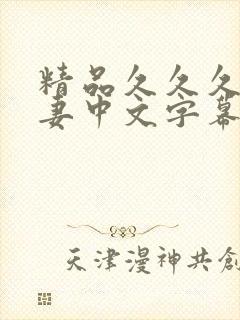 精品久久久
妻中文字幕
天津漫神共創